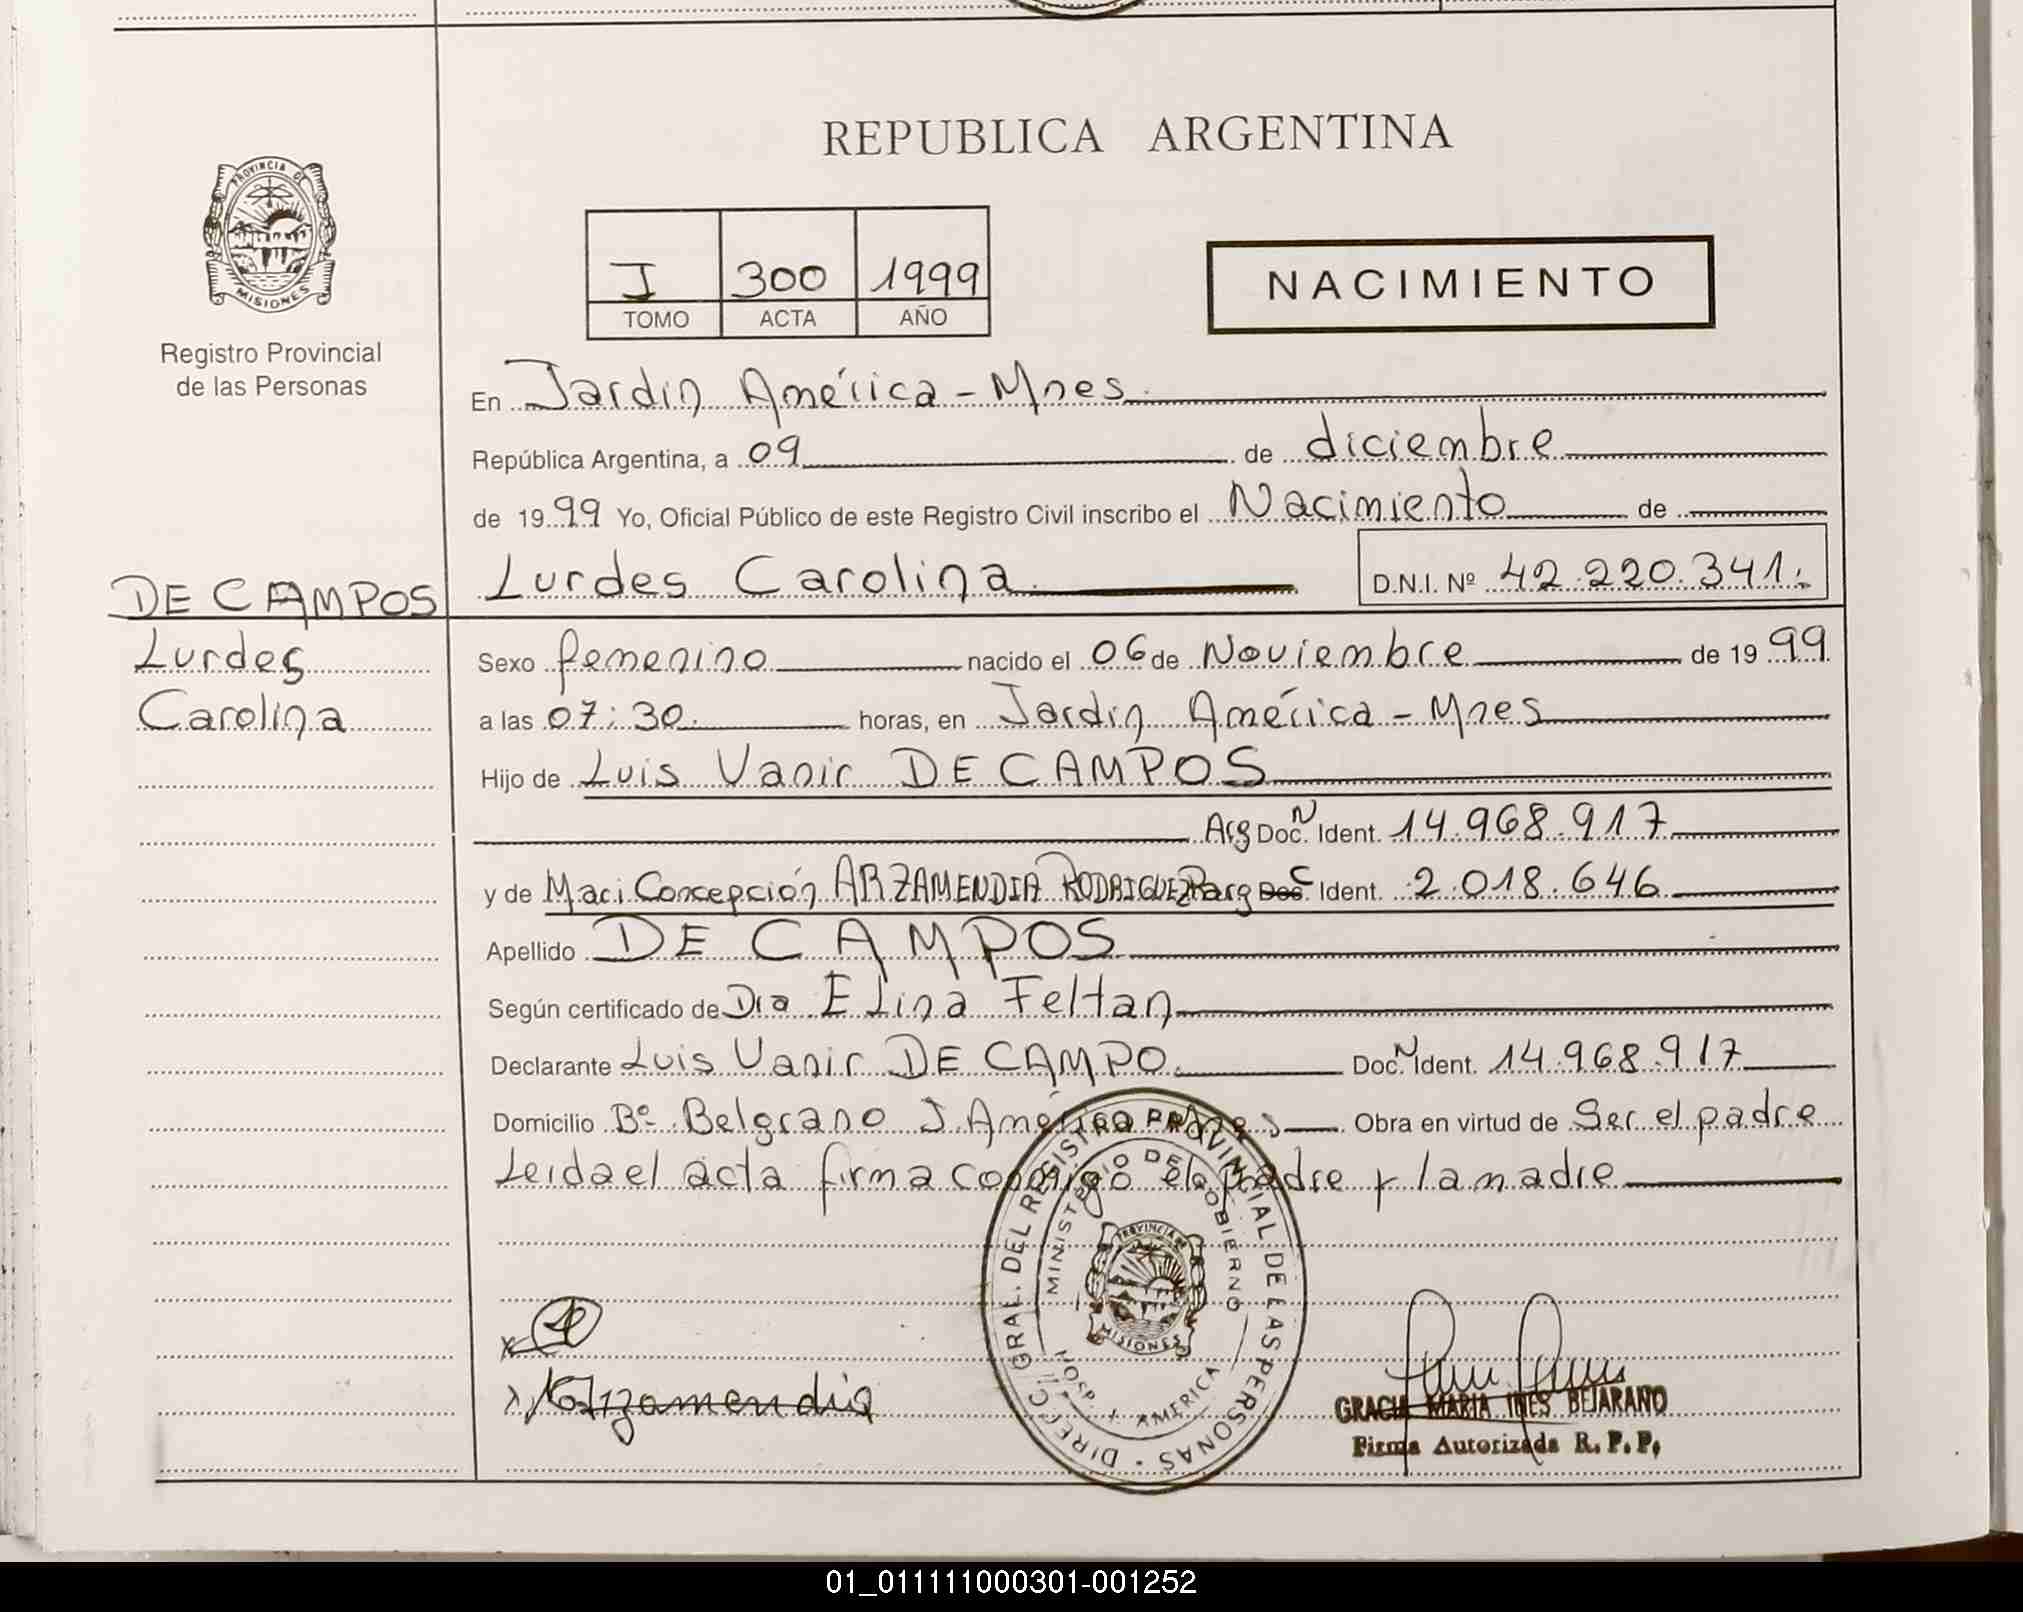 REPUBLICA ARGENTINA
PROVINCIA DE
MISIONES
Registro Provincial
de las Personas
I 300 1999
TOMO ACTA AÑO
NACIMIENTO
En Jardin América - Mnes
República Argentina, a 09 de diciembre
de 1999 Yo, Oficial Público de este Registro Civil inscribo el Nacimiento de
Lurdes Carolina D.N.I. Nº 42.220.341.
DE CAMPOS
Lurdes
Carolina
Sexo femenino nacido el 06 de Noviembre de 1999
a las 07:30 horas, en Jardin América - Mnes
Hijo de Luis Vanir DE CAMPOS
Arg Doc. N Ident. 14.968.917
y de Mari Concepción ARZAMENDIA RODRIGUEZ Parg Doc. C Ident. 2.018.646
Apellido DE CAMPOS
Según certificado de Dra Elina Feltan
Declarante Luis Vanir DE CAMPO Doc. N Ident. 14.968.917
Domicilio Bº Belgrano J. América Mnes Obra en virtud de Ser el padre
Leida el acta firma conmigo el padre y la madre
DIREC. GRAL. DEL REGISTRO PROVINCIAL DE LAS PERSONAS
MINISTERIO DE GOBIERNO
PROVINCIA DE
MISIONES
HOSP. J. AMERICA
Arzamendia
GRACIA MARIA INES BEJARANO
Firma Autorizada R. P. P.
01_011111000301-001252